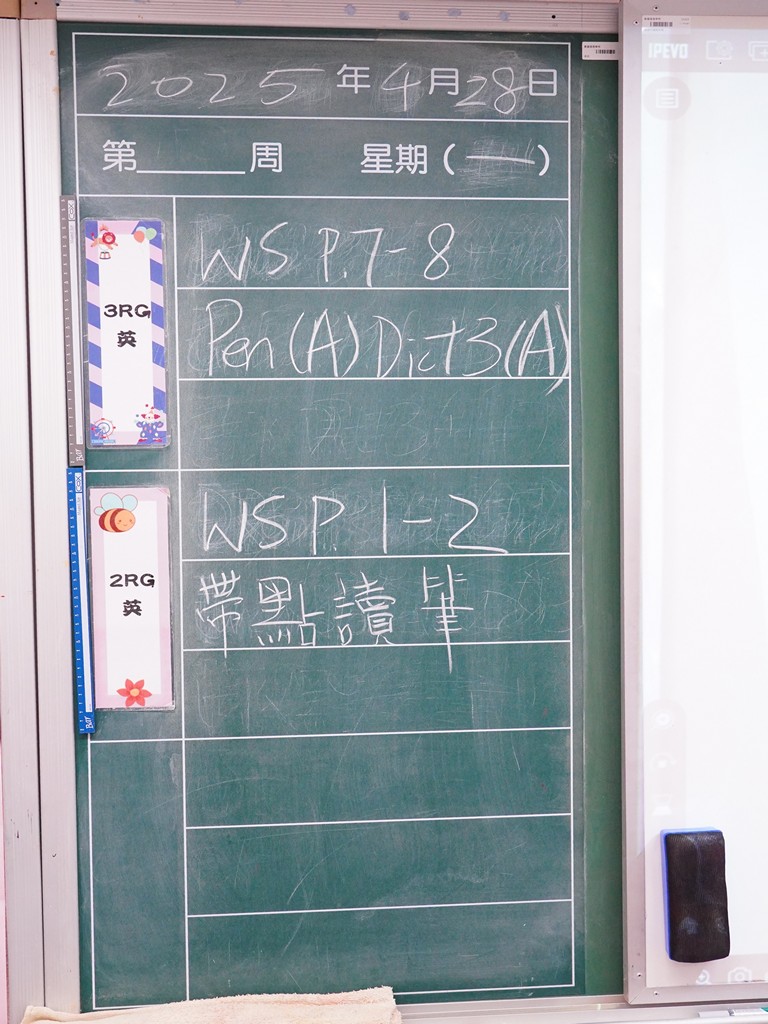 2025年4月28日
第____周 星期(一)
3RG
英
WS P.7-8
Pen(A) Dict3(A)
2RG
英
WS P.1-2
帶點讀筆
IPEVO